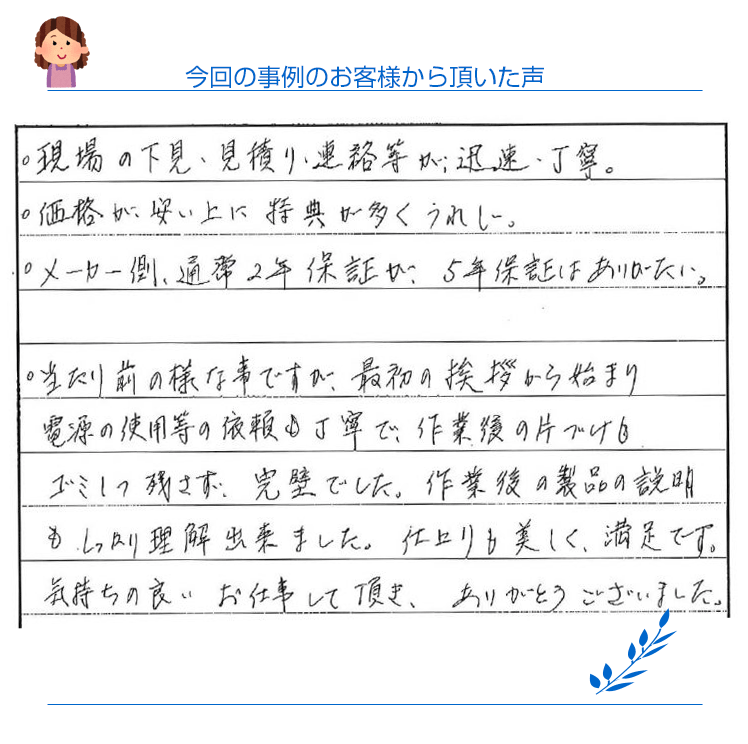 今回の事例のお客様から頂いた声
○現場の下見、見積り、連絡等が、迅速、丁寧。
○価格が、安い上に特典が多くうれしー。
○メーカー側、通常2年保証が、5年保証はありがたい。
○当たり前の様な事ですが、最初の挨拶から始まり
電源の使用等の依頼も丁寧で、作業後の片づけも
ゴミ1つ残さず、完壁でした。作業後の製品の説明
も、しっかり理解出来ました。仕上りも美しく、満足です。
気持ちの良いお仕事して頂き、ありがとうございました。